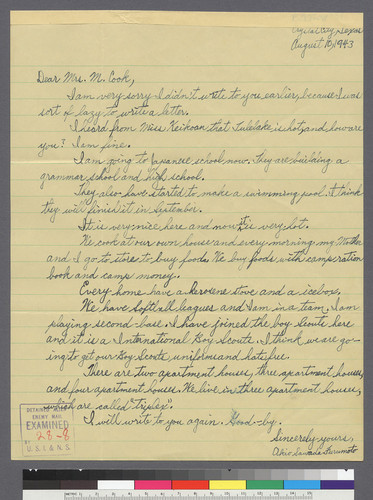 Crystal City, Texas
August 10, 1943
Dear Mrs. M. Cook,
I am very sorry I didn't write to you earlier, because I was
sort of lazy to write a letter.
I heard from Miss that Tulelake is hot, and how are
you? I am fine.
I am going to Japanese school now. They are building a
grammar school and high school.
They also have started to make a swimming pool. I think
they will finish it in September.
It is very nice here and now it is very hot.
We cook at our own house and every morning my Mother
and I go to store to buy food. We buy foods with camp ration
book and camp money.
Every home have a kerosene stove and a icebox.
We have Softball leagues and I am in a team. I am
playing second-base. I have joined the boy Scouts here
and it is a International Boy Scouts. I think we are go-
ing to get our Boy Scouts uniforms and hats free.
There are two apartment houses, three apartment houses,
and four apartment houses. We live in three apartment houses,
which are called "triplex".
I will write to you again. Good-by.
Sincerely yours,
DETAINED ALIEN
ENEMY MAIL
EXAMINED
28-8
BY
U.S.I.&N.S.